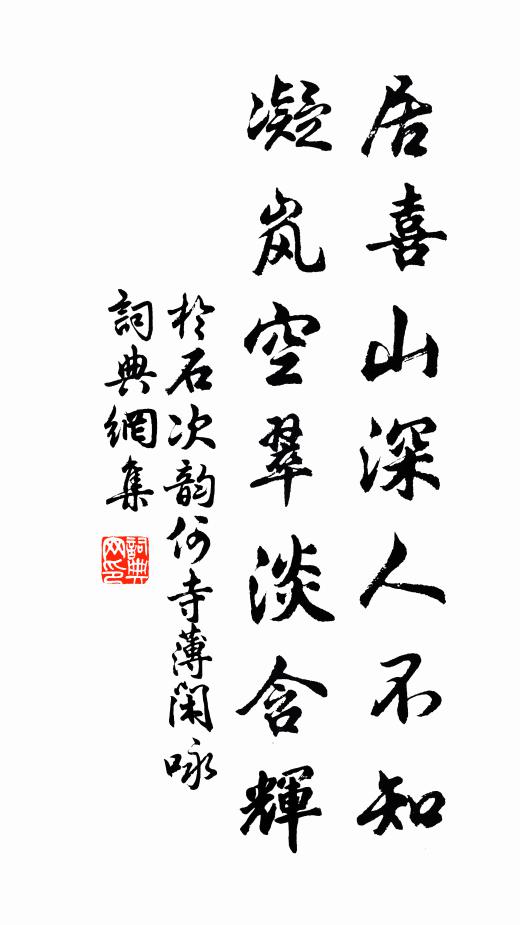 居喜山深人不知
凝岚空翠淡含輝
於石次韵何寺薄閑咏
詞典網集
詞典网印